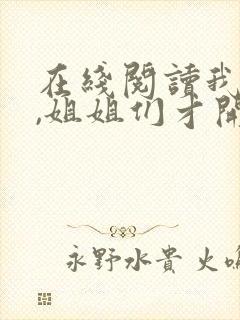 在綫閱讀我
,姐姐们才開
永野水貴 火鳴